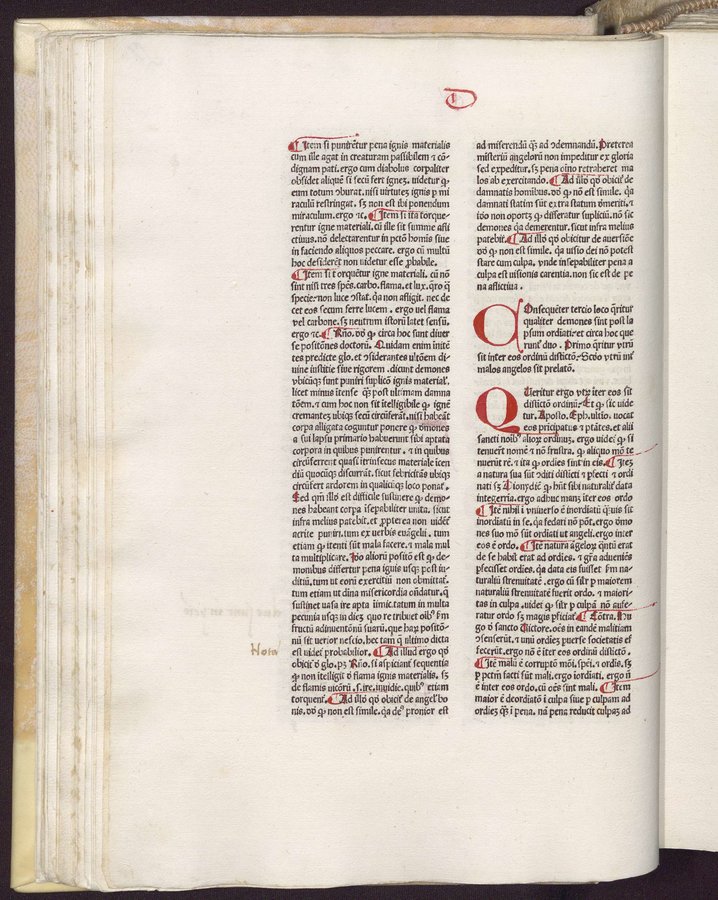 D
¶ Item si puniret̃ pena ignis materialis
cum ille agat in creaturam passibilem ⁊ cõ-
dignam pati. ergo cum diabolus corpaliter
obsidet aliquẽ si secũ fert ignez. uidetur ꝙ
eum totum ɔburat. nisi virtutez ignis p mi
raculũ restringat. sꝫ non est ibi ponendum
miraculum. ergo ⁊c. ¶ Item si ita torque-
rentur igne materiali. cũ ille sit summe afli
ctiuus. nõ delectarentur in pctm̃ homis siue
in faciendo aliquos peccare. ergo cũ multũ
hoc desiderẽt non uidetur esse ꝓbabile.
¶ Item si torquẽtur igne materiali. cũ nõ
sint nisi tres spẽs. carbo. flama. et lux. q̃ro q̃
specie. non luce ɔstat. q̃a non afligit. nec de
cet eos secum ferre lucem. ergo vel flama
vel carbone. sꝫ neutrum istorũ latet sensũ.
ergo ⁊c. ¶ Rño. dõ ꝙ circa hoc sunt diuer
se positões doctorũ. Quidam enim initẽ
tes predicte glo. et ɔsiderantes ultõem di-
uine iustitie siue rigorem. dicunt demones
vbicũqꝫ sunt puniri suplicõ ignis materiał.
licet minus itense q̃ post ultimam damna
tõem. ⁊ cum hoc non sit itelligibile ꝙ ignẽ
cremantez ubiqꝫ secũ circũferãt. nisi habeãt
corpa alligata coguntur ponere ꝙ demones
a sui lapsu primario habuerunt sibi aptata
corpora in quibus punirentur. ⁊ in quibus
circũferrent quasi itrinsecus materiale icen
diũ quocũqꝫ discurrãt. sicut febricitãs ubiqꝫ
circũfert ardorem in qualicũqꝫ loco ponat̃.
Sed qm̃ illð est difficile sustinere ꝙ demo-
nes habeant corpa iseparabiliter unita. sicut
infra melius patebit. et ꝓpterea non uidẽt̃
acrite puniri. tum ex verbis euãgelii. tum
etiam ꝙ itenti sũt mala facere. ⁊ mala mul
ta multiplicare. Iðo aliorũ positõ est ꝙ de-
monibus differtur pena ignis usqꝫ post iu-
ditiũ. tum ut eorũ exercitiũ non obmittat̃.
tum etiam ut dina misericordia oñdatur. q̃
sustinet uasa ire apta iimic. tatum in multa
pecunia usqꝫ in diez quo re tribuet oibꝫ fm̃
fructũ adinuentõnũ suarũ. que haꝝ positõ-
nũ sit uerior nescio. hec tam q̃ ultimo dicta
est uidet̃ probabilior. ¶ Ad illud ergo qð
obicit̃ ð glo. pꝫ Rño. si aspiciant̃ sequentia
ꝙ non itelligit ð flama ignis materialis. sꝫ
de flamis uicõrũ. s. ire. inuidie. quibꝫ etiam
torquent̃. ¶ Ad illð qð obicit̃ de angeł bo
nis. dð ꝙ non est simile. q̃a deꝰ pronior est
ad miserendũ q̃ ad ɔdemnandũ. Preterea
misteriũ angelorũ non impeditur ex gloria
sed expeditur. sꝫ pena oĩno retraberet ma
los ab exercitando. ¶ Ad illð qð obicit̃ de
damnatis homibus. dð ꝙ nõ est simile. q̃a
damnati statim sũt extra statum ðmeriti. ⁊
iðo non oportꝫ ꝙ differatur supliciũ. nõ sic
demones q̃a demerentur. sicut infra melius
patebit. ¶ Ad illð qð obicitur de auersiõe
dð ꝙ non est simile. q̃a uisio dei nõ potest
stare cum culpa. vnde inseparabiliter pena a
culpa est uisionis carentia. non sic est de pe
na aflictiua.
Consequẽter tercio loco q̃ritur
qualiter demones sint post la
psum ordiati. et circa hoc que
runt̃ duo. Primo q̃ritur vtrũ
sit inter eos ordinũ distictõ. Scðo vtrũ int̃
malos angelos sit prelatõ.
Queritur ergo vtꝝ iter eos sit
distictõ ordinũ. Et ꝙ sic uide
tur. Apostolo. Eph. ultio. uocat
eos pricipatus ⁊ ptãtes. et alii
sancti noibꝫ alioꝝ ordinuz. ergo uidet̃ ꝙ si
tenuerũt nomẽ ⁊ nõ frustra. ꝙ aliquo mõ te
nuerũt rẽ. ⁊ ita ꝙ ordies sint in eis. ¶ Itez
a natura sua sũt ɔditi disticti ⁊ pfecti ⁊ ordi
nati sꝫ Dionysiẽ ꝙ hũt sibi naturalĩ data
integerria. ergo adhuc manꝫ iter eos ordo
¶ Itẽ nihil i vniuerso ẽ inordiatũ q̃tũuis sit
inordiatũ in se. q̃a fedari nõ põt. ergo ðmo
nes suo mõ sũt ordiati ut angeli. ergo inter
eos ẽ ordo. ¶ Itẽ natura ãgeloꝝ q̃ntũ erat
de se habił erat ad ordies. ⁊ gr̃a adueniẽs
pfecisset ordies. q̃a data eis fuisset fm na-
turaliũ strenuitatẽ. ergo cũ sił r p maiorem
naturaliũ strenuitatẽ fuerit ordo. ⁊ maiori-
tas in culpa. uidet̃ ꝙ sił r p culpã nõ aufe-
ratur ordo sꝫ magis pficiat̃. ¶ Cõtra. Hu
go ð sancto Victore. oẽs in eandẽ malitiam
ɔsenserũt. ⁊ uni ordiez puerse societatis ef
fecerũt. ergo nõ ẽ iter eos ordinũ distictõ.
¶ Itẽ malũ ẽ corruptõ mõi. spẽi. ⁊ ordis. sꝫ
p pctm̃ facti sũt mali. ergo iordiati. ergo ñ
ẽ inter eos ordo. cũ oẽs sint mali. ¶ Item
maior ẽ deordiatõ i culpa siue p culpam ad
ordiez q̃ i pena. nã pena reducit culpaz ad
Nota